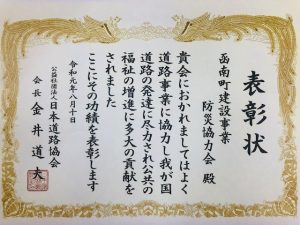 表彰状
函南町建設事業
防災協力会 殿
貴会におかれましてはよく
道路事業に協力し我が国
道路の発達に尽力され公共の
福祉の増進に多大の貢献を
されました
ここにその功績を表彰します
令和元年八月十日
公益社団法人 日本道路協会
会長 金井道夫